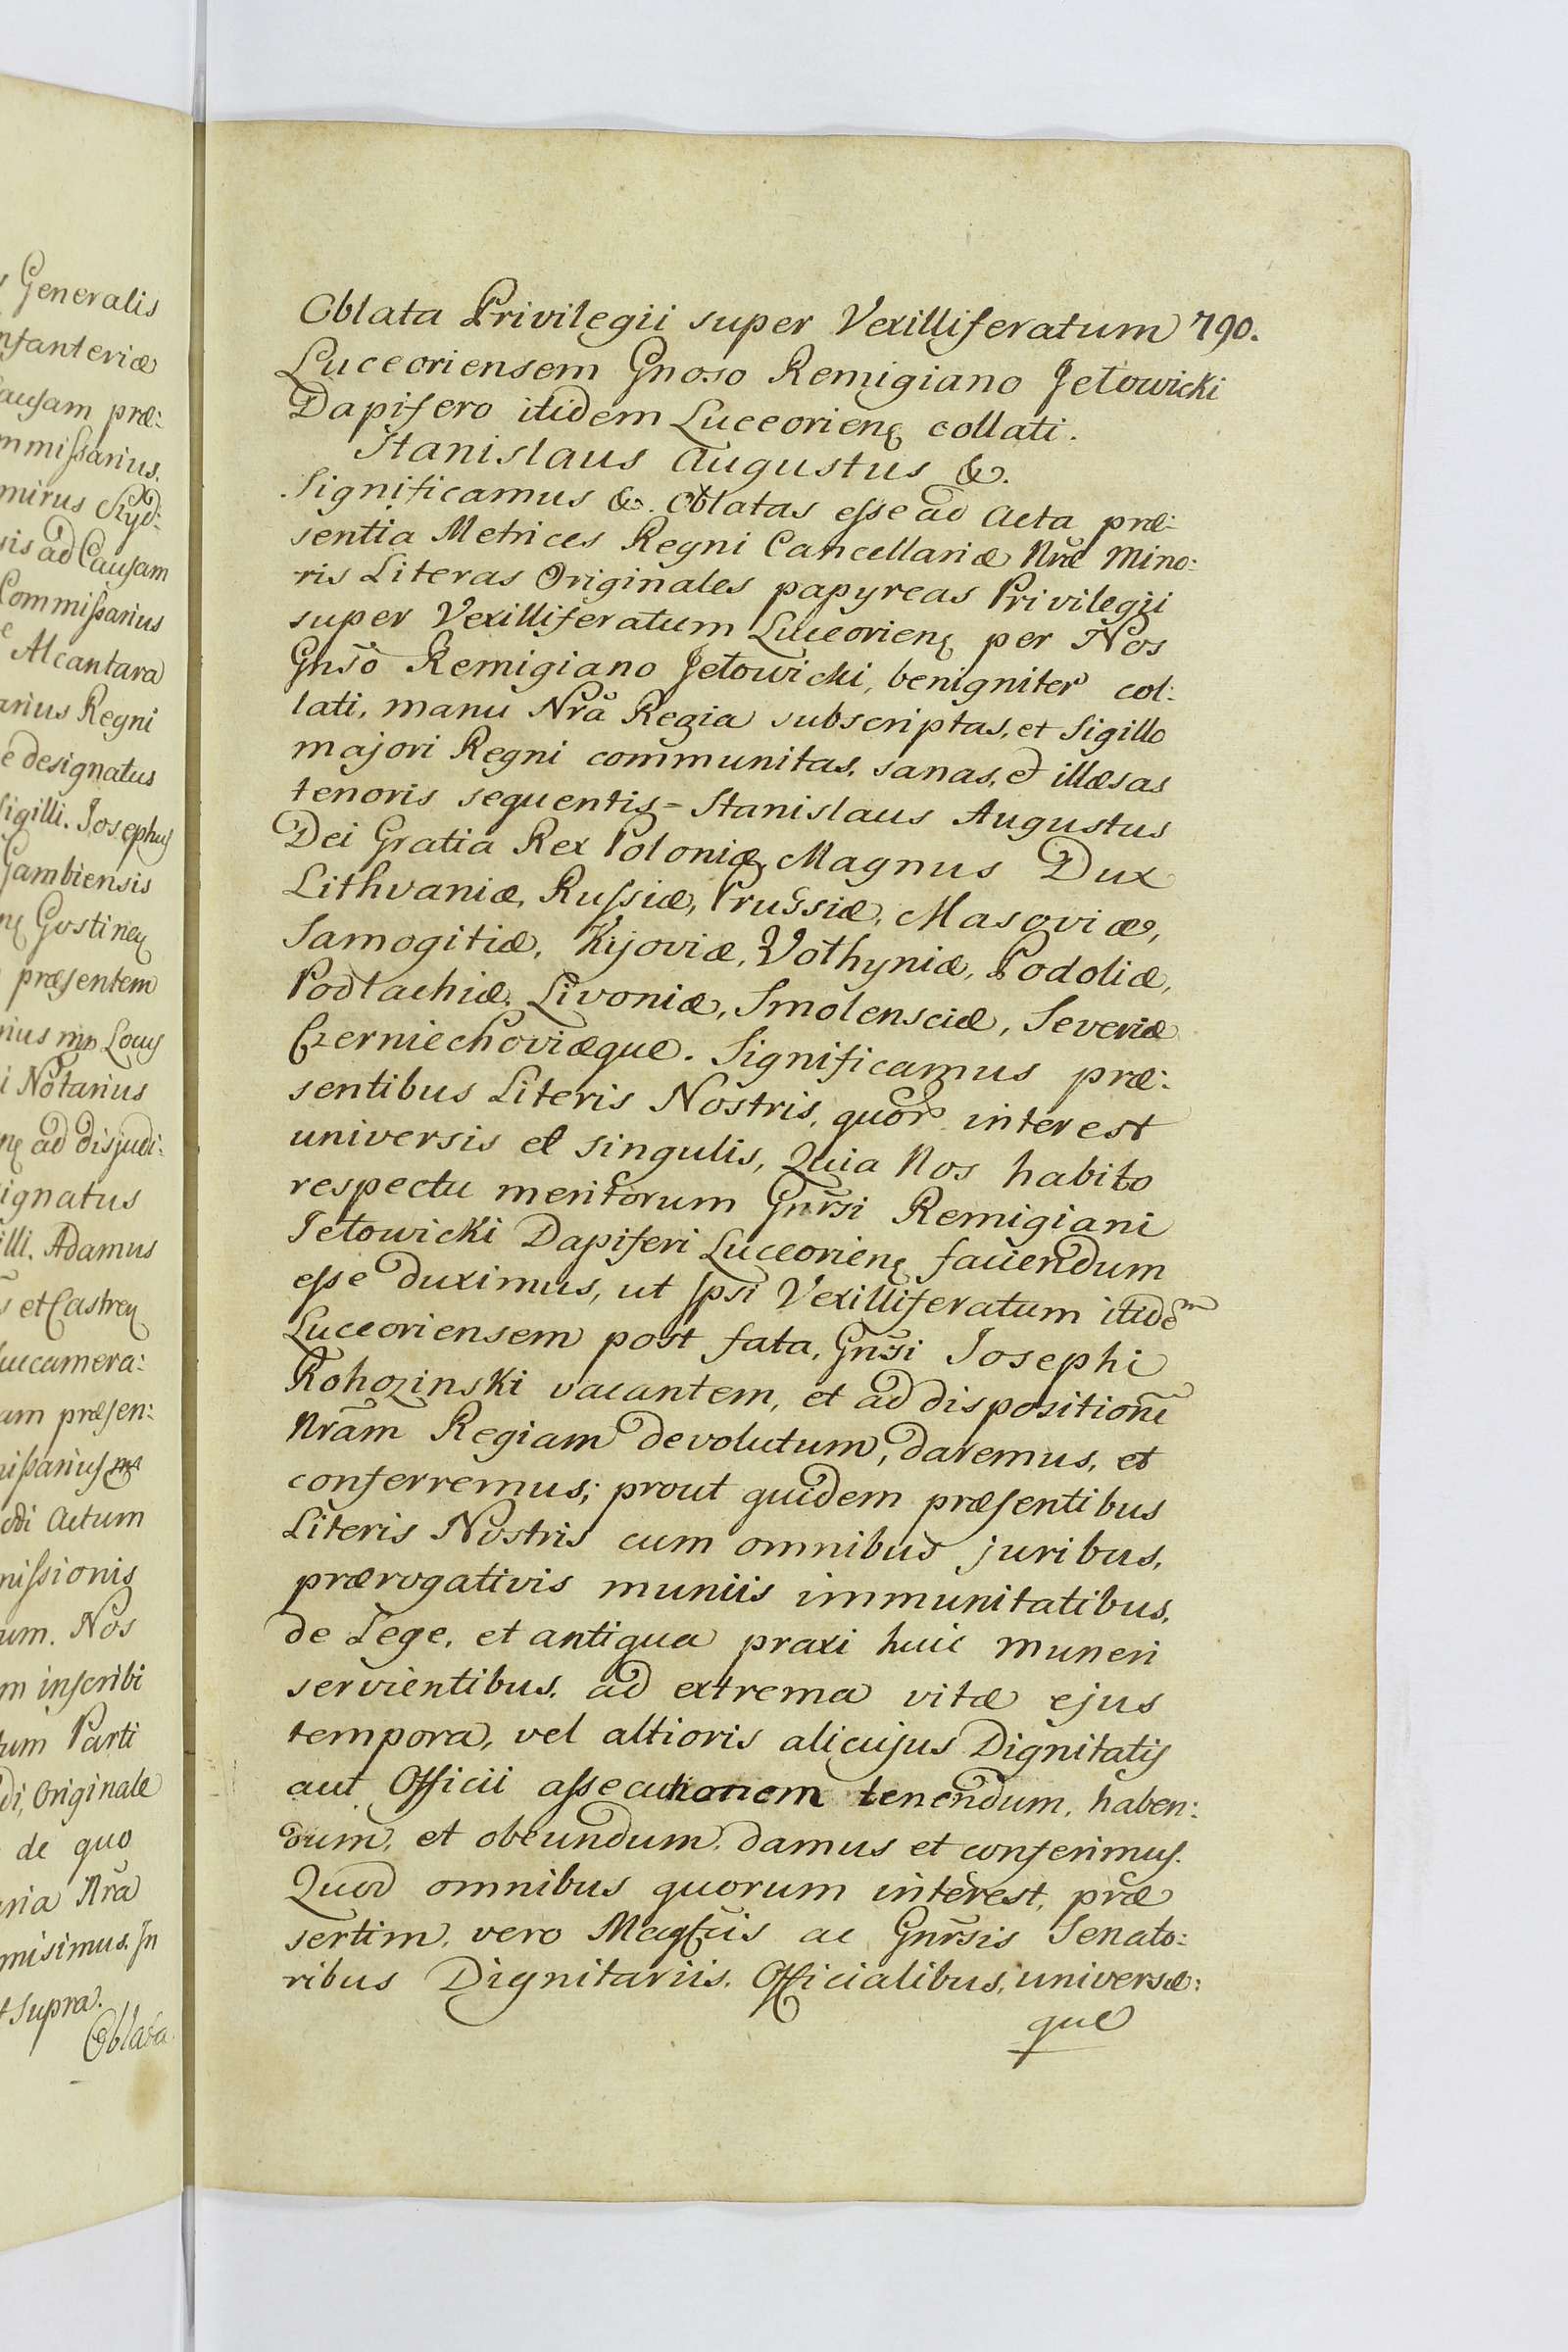 s Generalis
nfanteriæ
ausam præ:
mmissarius.
mirus
sis ad Causam
Commissarius
Alcantara
arius Regni
e designatus
Sigilli. Josephus
Gambiensis
Gostinen
præsentem
nius mp Locus
i Notarius
ad disjudi:
ignatus
illi. Adamus
s et Castren
uccamera:
am præsen:
missarius mp
odi Actum
missionis
um. Nos
m inscribi
tum Parti
di, Originale
de quo
aria Nrã
misimus. In
t supra.
Oblata
Oblata Privilegii super Vexilliferatum 790.
Luceoriensem Gnoso Remigiano Jełowicki
Dapifero itidem Luceorien collati.
Stanislaus Augustus &.
Significamus &. Oblatas esse ad Acta præ:
sentia Metrices Regni Cancellariæ Nræ Mino:
ris Literas Originales papyreas Privilegii
super Vexilliferatum Luceorien per Nos
Gnsõ Remigiano Jełowicki, benigniter col:
lati, manu Nrã Regia subscriptas, et Sigillo
majori Regni communitas, sanas, et illæsas
tenoris sequentis = Stanislaus Augustus
Dei Gratia Rex Poloniæ, Magnus Dux
Lithvaniæ, Russiæ, Prussiæ, Masoviæ,
Samogitiæ, Kijoviæ, Vołhyniæ, Podoliæ,
Podlachiæ, Livoniæ, Smolensciæ, Severiæ
Czerniechoviæque. Significamus præ:
sentibus Literis Nostris, quor interest
universis et singulis, Quia Nos habito
respectu meritorum Gnrsi Remigiani
Jełowicki Dapiferi Luceorien faciendum
esse duximus, ut Ipsi Vexilliferatum itidem
Luceoriensem post fata, Gnrsi Josephi
Rohozinski vacantem, et ad dispositionẽ
Nrãm Regiam devolutum, daremus, et
conferremus; prout quidem præsentibus
Literis Nostris cum omnibus juribus,
prærogativis muniis immunitatibus,
de Lege, et antiqua praxi huic muneri
servientibus, ad extrema vitæ ejus
tempora, vel altioris alicujus Dignitatis
aut Officii assecutionem tenendum, haben:
dum, et obeundum, damus et conferimus.
Quod omnibus quorum interest, præ
sertim, vero Magfcis ac Gnrsis Senato:
ribus Dignitariis, Officialibus, universæ:
que